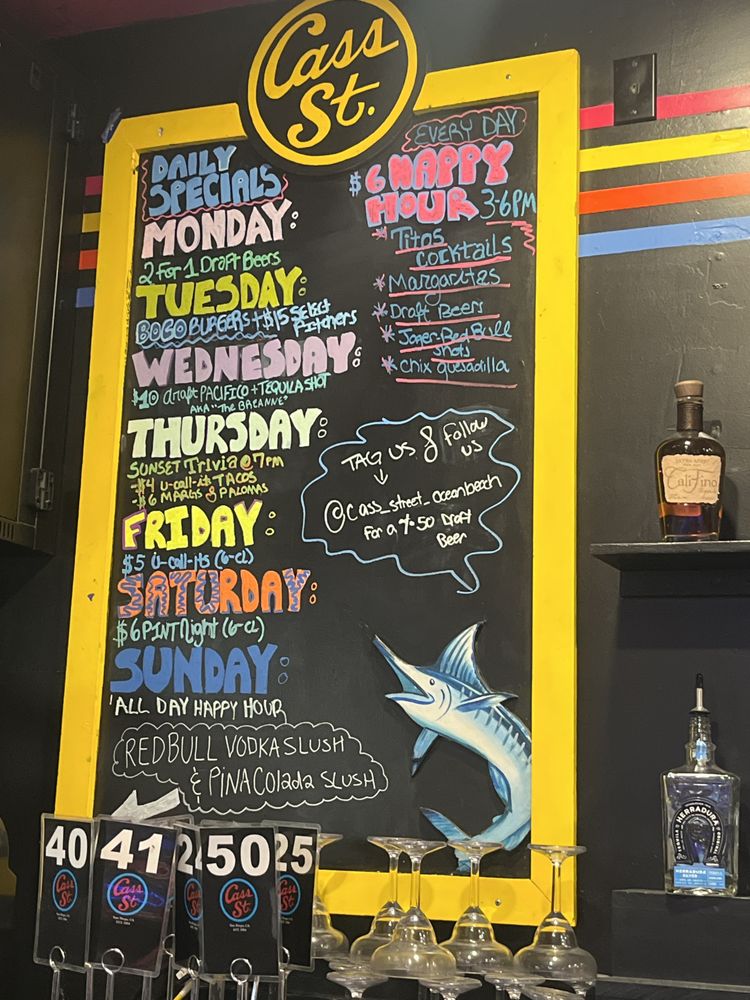 Cass
St.
DAILY
SPECIALS
MONDAY:
2 For 1 Draft Beers
TUESDAY:
BOGO BURGERS + $15 Select
Pitchers
WEDNESDAY:
$10 draft PACIFICO + TEQUILA SHOT
AKA "The BREANNE"
THURSDAY:
SUNSET Trivia @ 7pm
-$4 U-call-its TACOS
-$6 MARGS & PALOMAS
FRIDAY:
$5 U-call-its (6-CL)
SATURDAY:
$6 PINT Night (6-CL)
SUNDAY:
ALL DAY HAPPY HOUR
RED BULL VODKA SLUSH
& PINA Colada SLUSH
EVERY DAY
$6 HAPPY
HOUR 3-6PM
* Titos
cocktails
* Margaritas
* Draft Beers
* Jager-Red Bull
shots
* Chix quesadilla
TAG US & Follow
US
@Cass_street_oceanbeach
For a $.50 Draft
Beer
CaliFino
HERRADURA
HERRADURA
SILVER
40
Cass
St.
41
Cass
St.
2
50
Cass
St.
25
Cass
St.